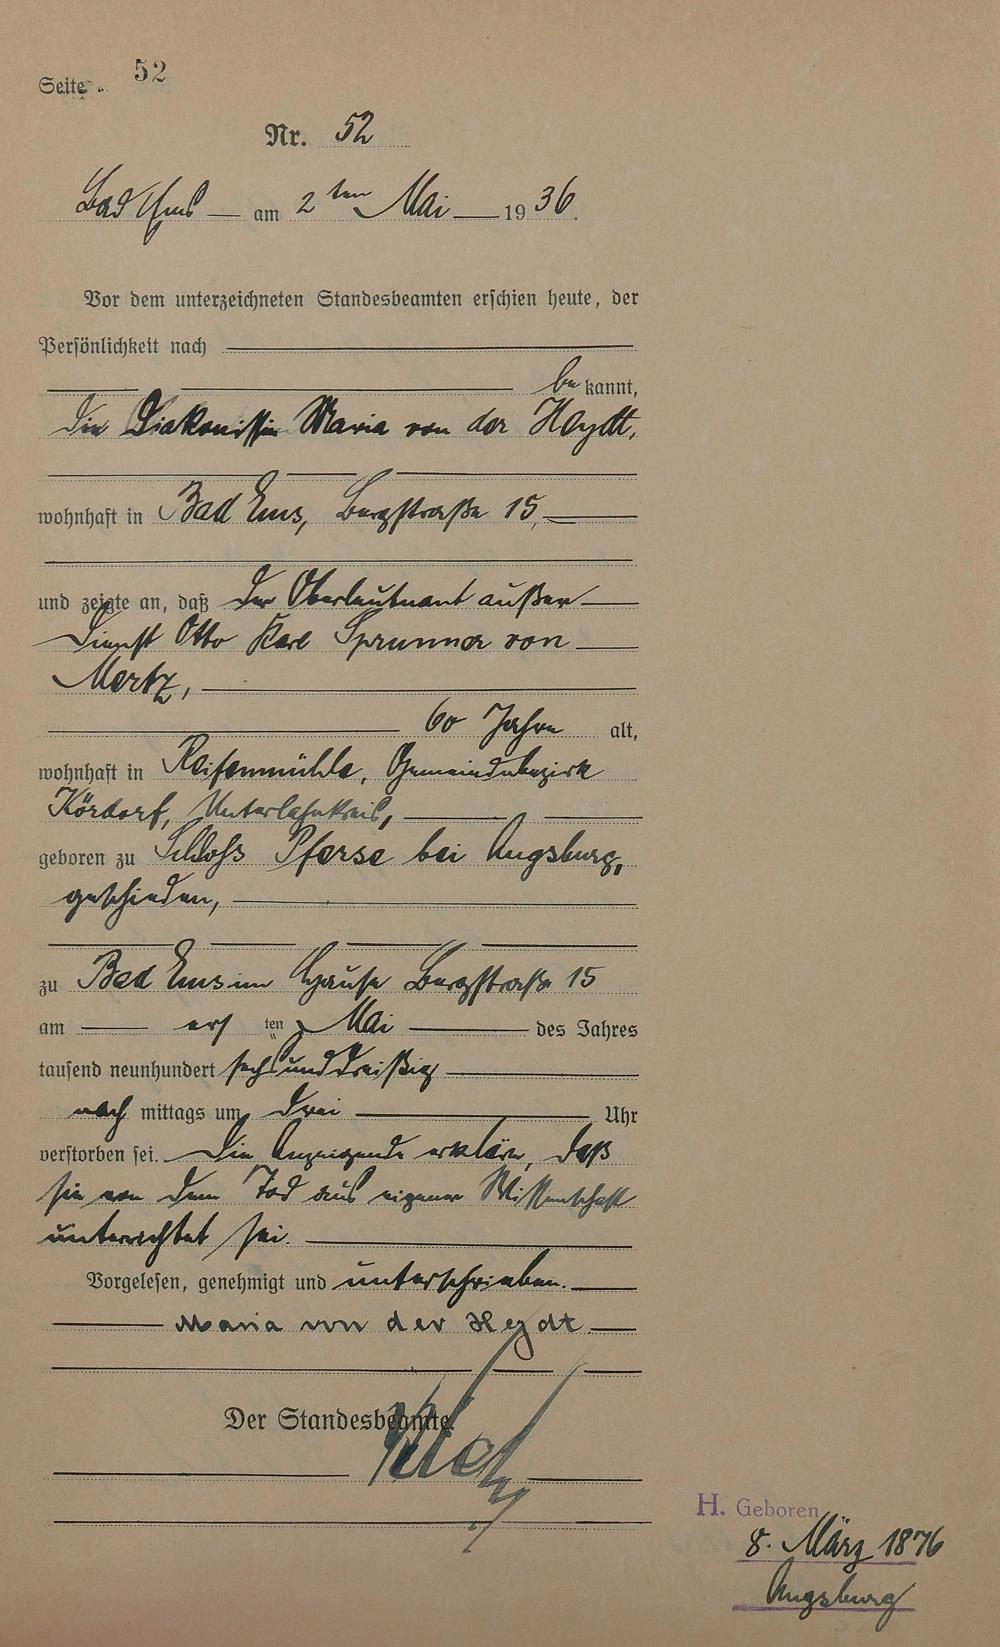 Seite 52
Nr. 52
Bad Ems — am 2ten Mai — 1936.
Vor dem unterzeichneten Standesbeamten erschien heute, der
Persönlichkeit nach
bekannt,
die Diakonissin Maria von der Heydt,
wohnhaft in Bad Ems, Bergstraße 15,
und zeigte an, daß der Oberleutnant außer
Dienst Otto Karl Sprunner von
Mertz,
60 Jahre alt,
wohnhaft in Reifenmühle, Gemeindebezirk
Kördorf, Unterlahnkreis,
geboren zu Schloß Pferse bei Augsburg,
geschieden,
zu Bad Ems im Hause Bergstraße 15
am ersten Mai des Jahres
tausend neunhundert sechsunddreißig
nachmittags um drei Uhr
verstorben sei. Die Anzeigende erklärte, daß
sie von dem Tod aus eigener Wissenschaft
unterrichtet sei.
Vorgelesen, genehmigt und unterschrieben.
Maria von der Heydt.
Der Standesbeamte.
H. Geboren
8. März 1876
Augsburg